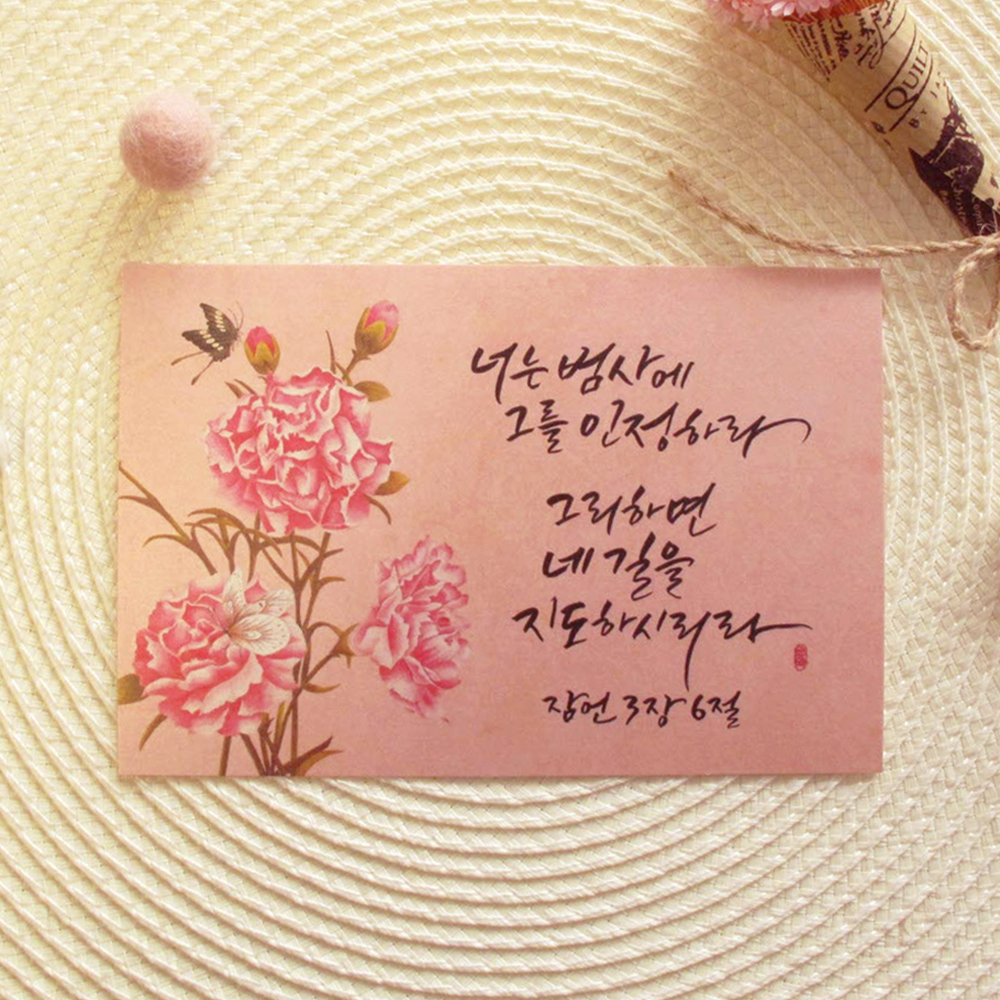 너는 범사에
그를 인정하라
그리하면
네 길을
지도하시리라
잠언 3장 6절
QUILT